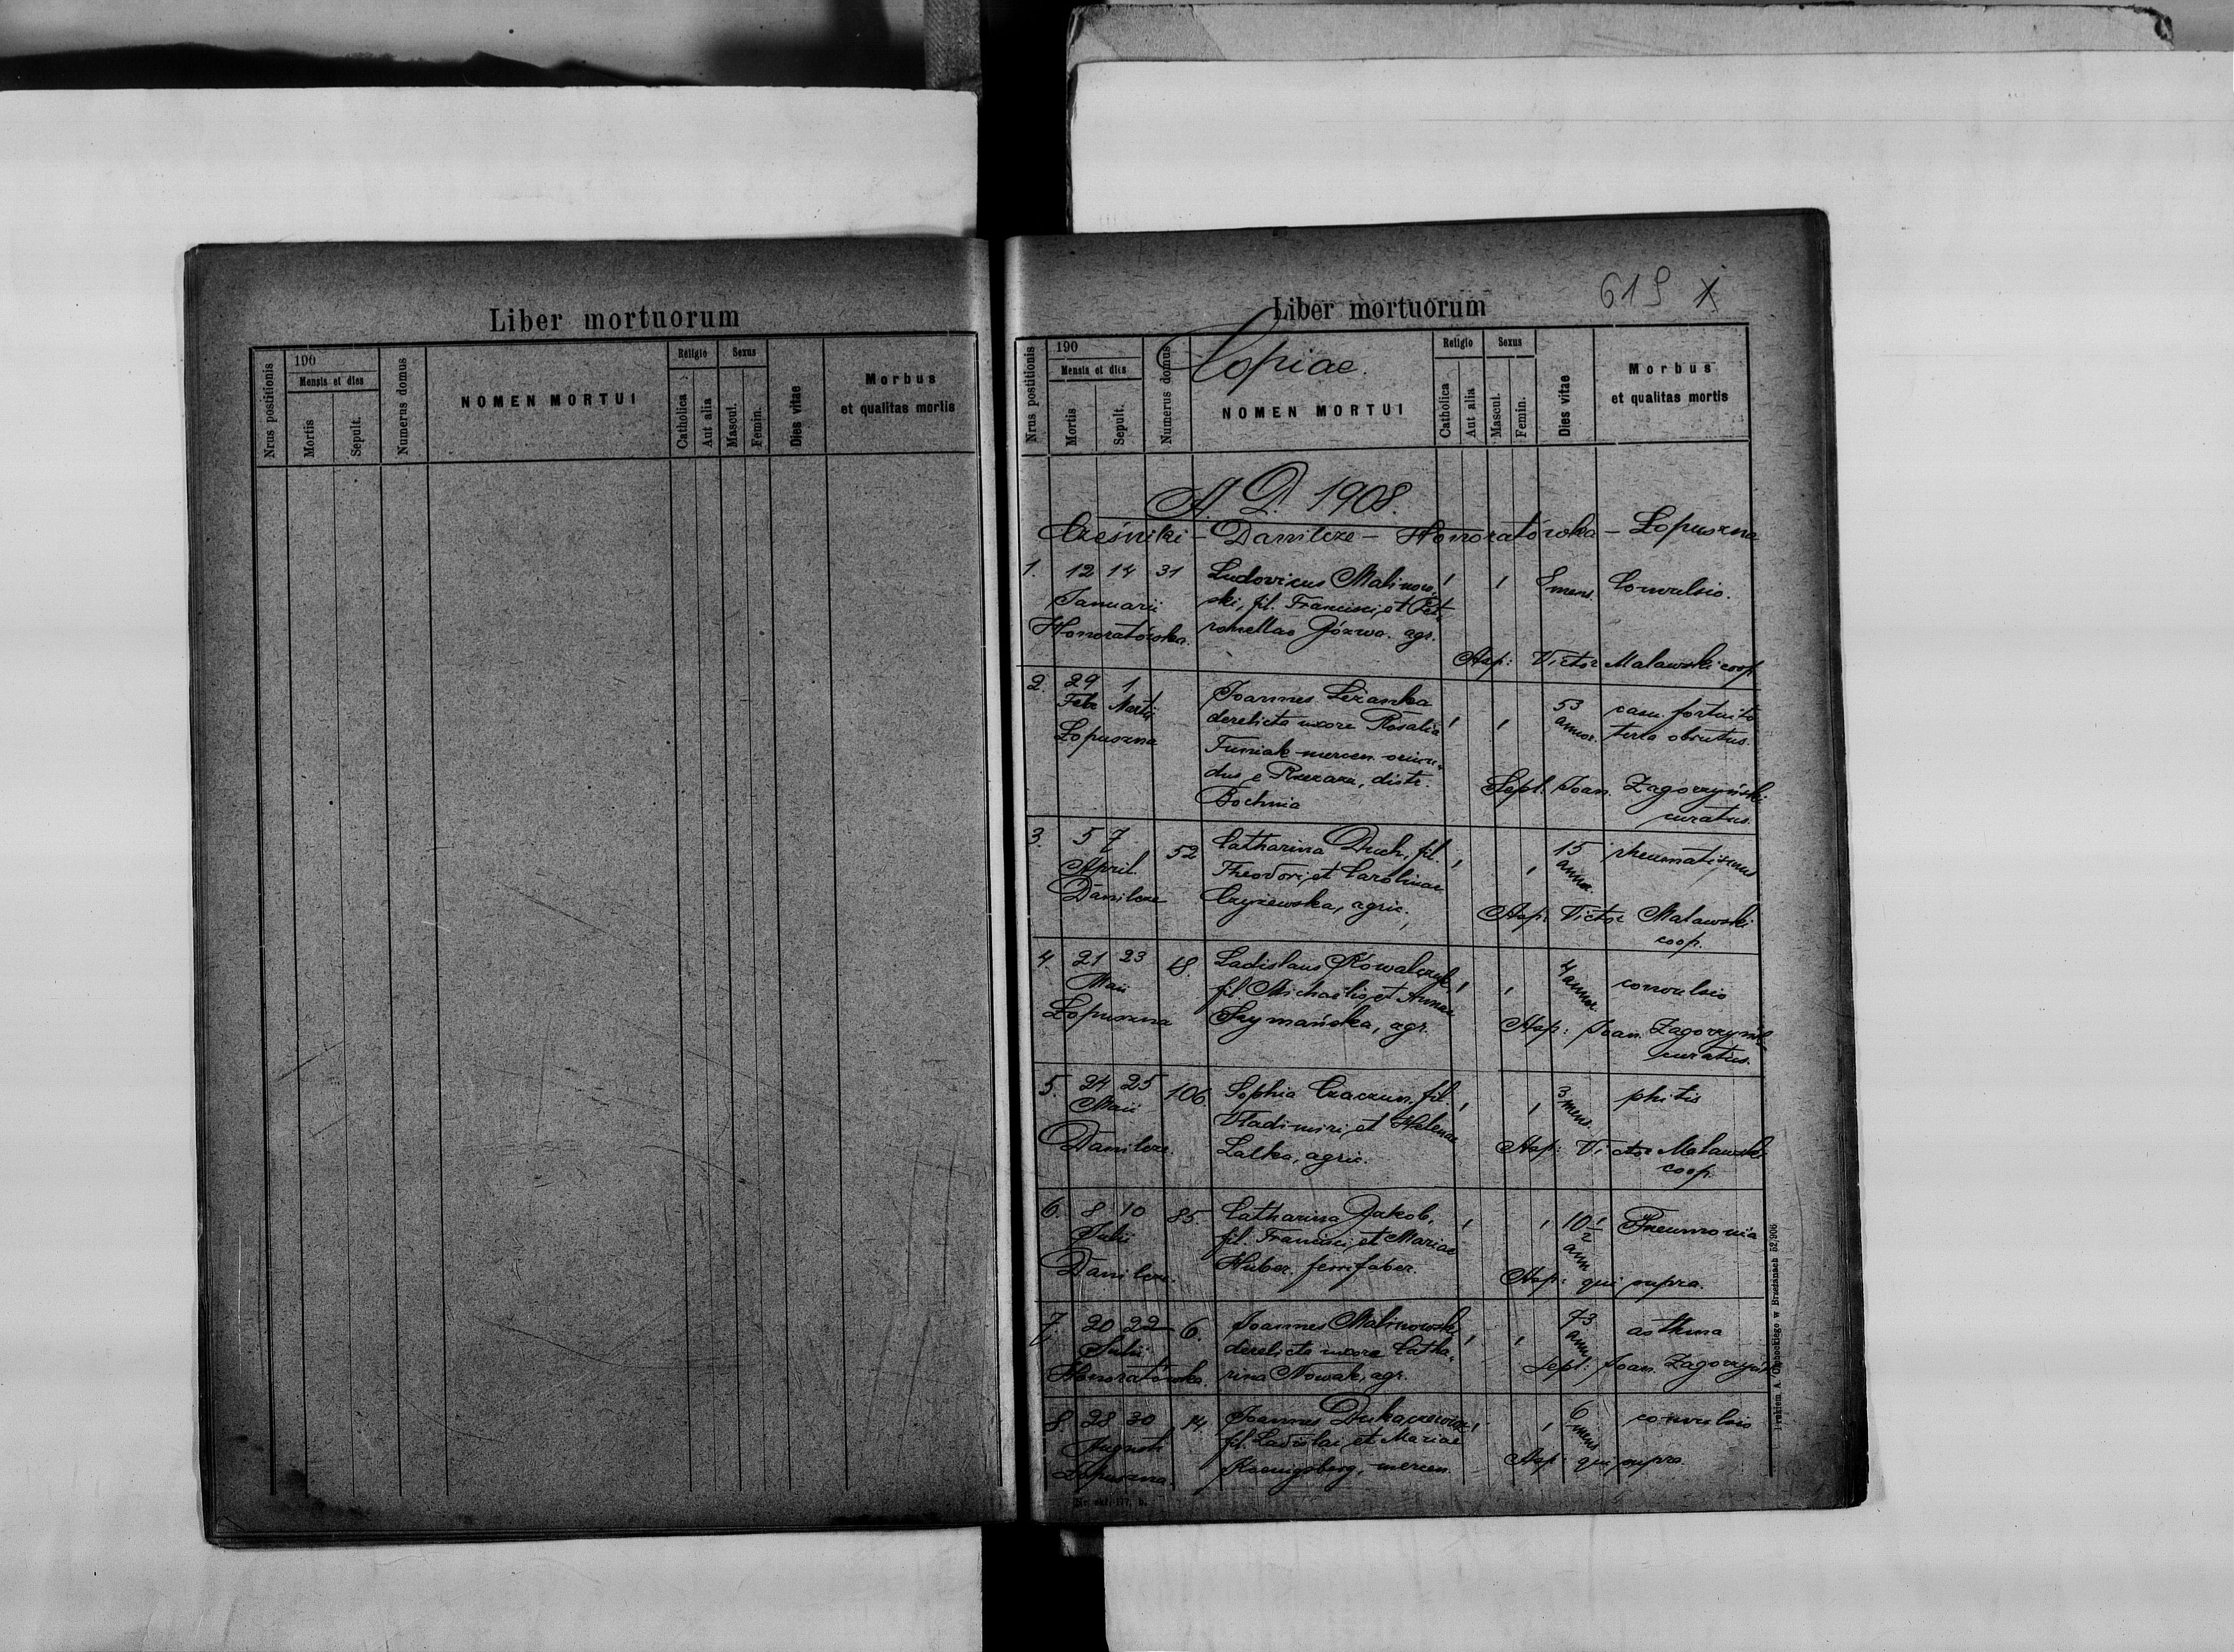 Liber mortuorum
Nrus postitionis
190
Mensis et dies
Mortis
Sepult.
Numerus domus
NOMEN MORTUI
Religio
Catholica
Aut alia
Sexus
Mascul.
Femin.
Dies vitae
Morbus
et qualitas mortis
619 1
Liber mortuorum
Copiae.
Nrus postitionis
190
Mensis et dies
Mortis
Sepult.
Numerus domus
NOMEN MORTUI
Religio
Catholica
Aut alia
Sexus
Mascul.
Femin.
Dies vitae
Morbus
et qualitas mortis
A. D. 1908.
Cześniki – Danilcze – Honoratówka – Łopuszna
1. 12 14 31 Ludovicus Malinow- 1 1 mens. Convulsio.
Januarii ski, fil. Francisci et Pet-
Honoratówka. ronellae Józwa. agr.
Asp: Victor Malawski coop.
2. 29 1 Joannes Leżanka 1 1 53 casu fortuito
Febr Martii derelicta uxore Rosalia annor. terra obrutus.
Łopuszna Tuniak mercen. oriun-
dus e Rzezawa, distr.
Bochnia
Sepl. Joan. Zagorzyński
curatus.
3. 5 7 52 Catharina Duch, fil. 1 1 15 rheumatismus
April. Theodori et Carolinae annor.
Danilcze Czyżewska, agric.
Asp: Victor Malawski
coop.
4. 21 23 18. Ladislaus Kowalczuk, 1 1 4 annor. convulsio
Maii fil. Michaëlis et Annae
Łopuszna Szymańska, agr.
Asp: Joan. Zagorzyńsk
curatus.
5. 24 25 106 Sophia Czaczun. fil. 1 1 3 mens. phitis
Maii Vladimiri et Helenae
Danilcze. Lalka, agric.
Asp: Victor Malawski
coop.
6. 8 10 85. Catharina Jakob, 1 1 10 1/2 ann Pneumonia
Julii fil. Francisci et Mariae
Danilcze. Huber. ferrifaber.
Asp: qui supra.
7. 20 22 6. Joannes Malinowski, 1 1 73 annor asthma
Julii derelicta uxore Catha-
Honoratówka. rina Nowak, agr.
Sepl: Joan. Zagorzyńs
8. 28 30 14. Joannes Dukaczewicz, 1 1 6 mens convulsio
Augusti fil. Ladislai et Mariae
Łopuszna Koenigsberg, mercen.
Asp: qui supra.
Drukiem A. w Brzeżanach 52/906